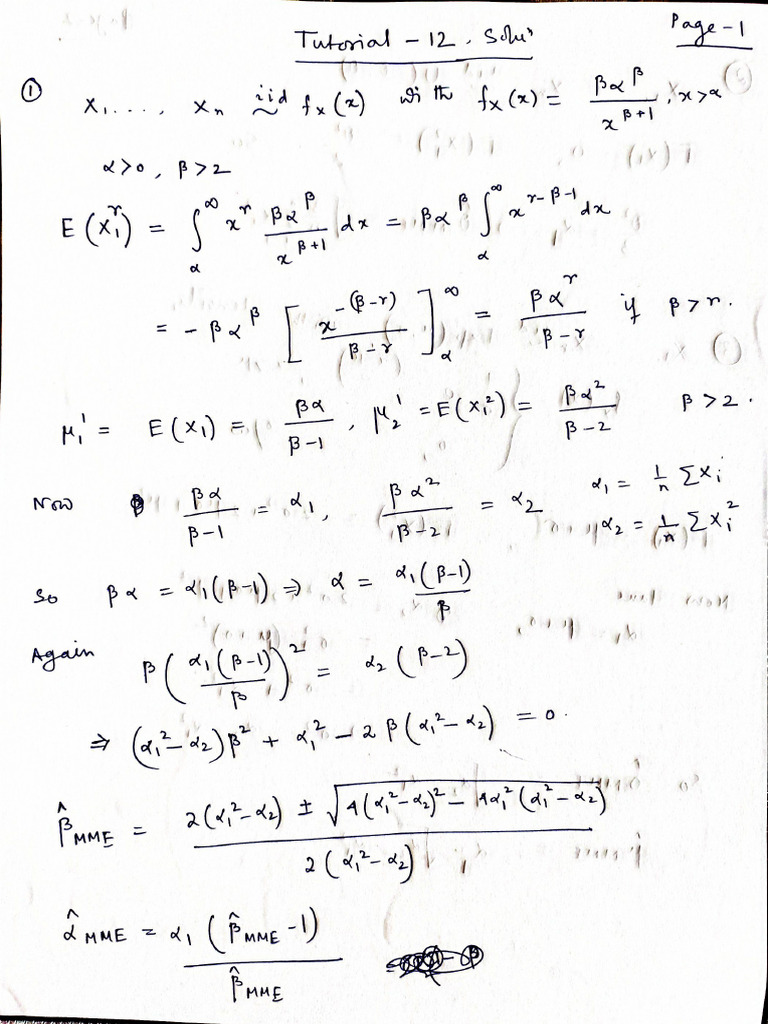 Page-1
Tutorial - 12. Solns
① X₁, ..., Xₙ iid ~ f_X(x) with f_X(x) = βα^β / x^(β+1), x>α
α>0, β>2
E(X₁^r) = ∫_α^∞ x^r βα^β / x^(β+1) dx = βα^β ∫_α^∞ x^(r-β-1) dx
= -βα^β [ x^(-(β-r)) / (β-r) ]_α^∞ = βα^r / (β-r) if β>r.
μ₁' = E(X₁) = βα / (β-1), μ₂' = E(X₁²) = βα² / (β-2) β>2.
Now βα / (β-1) = α₁, βα² / (β-2) = α₂ α₁ = 1/n ΣXᵢ
α₂ = 1/n ΣXᵢ²
So βα = α₁(β-1) ⇒ α = α₁(β-1) / β
Again β( α₁(β-1) / β )² = α₂(β-2)
⇒ (α₁²-α₂)β² + α₁² - 2β(α₁²-α₂) = 0.
β̂_MME = 2(α₁²-α₂) ± √(4(α₁²-α₂)² - 4α₁²(α₁²-α₂)) / 2(α₁²-α₂)
α̂_MME = α₁(β̂_MME - 1) / β̂_MME